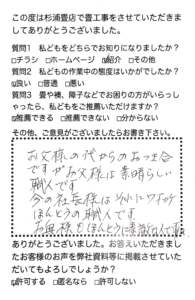 この度は杉浦畳店で畳工事をさせていただきま
してありがとうございました。
質問1 私どもをどちらでお知りになりましたか?
□チラシ □ホームページ ☑紹介 □その他
質問2 私どもの作業中の態度はいかがでしたか?
☑良い □普通 □悪い
質問3 畳や襖、障子などでお困りの方がいらっし
ゃったら、私どもをご推薦いただけますか?
☑推薦できる □推薦できない □分からない
その他、ご意見がございましたらお書き下さい。
お父様の代からのお つき合
ですが お父様は素晴らしい
職人です
今の社長様は それに
ほんとうの職人です
お母様も ほんとうに
ありがとうございました。お答えいただきまし
たお客様のお声を弊社資料等に掲載させていた
だいてもよろしでしょうか?
☑許可する □匿名なら □許可しない